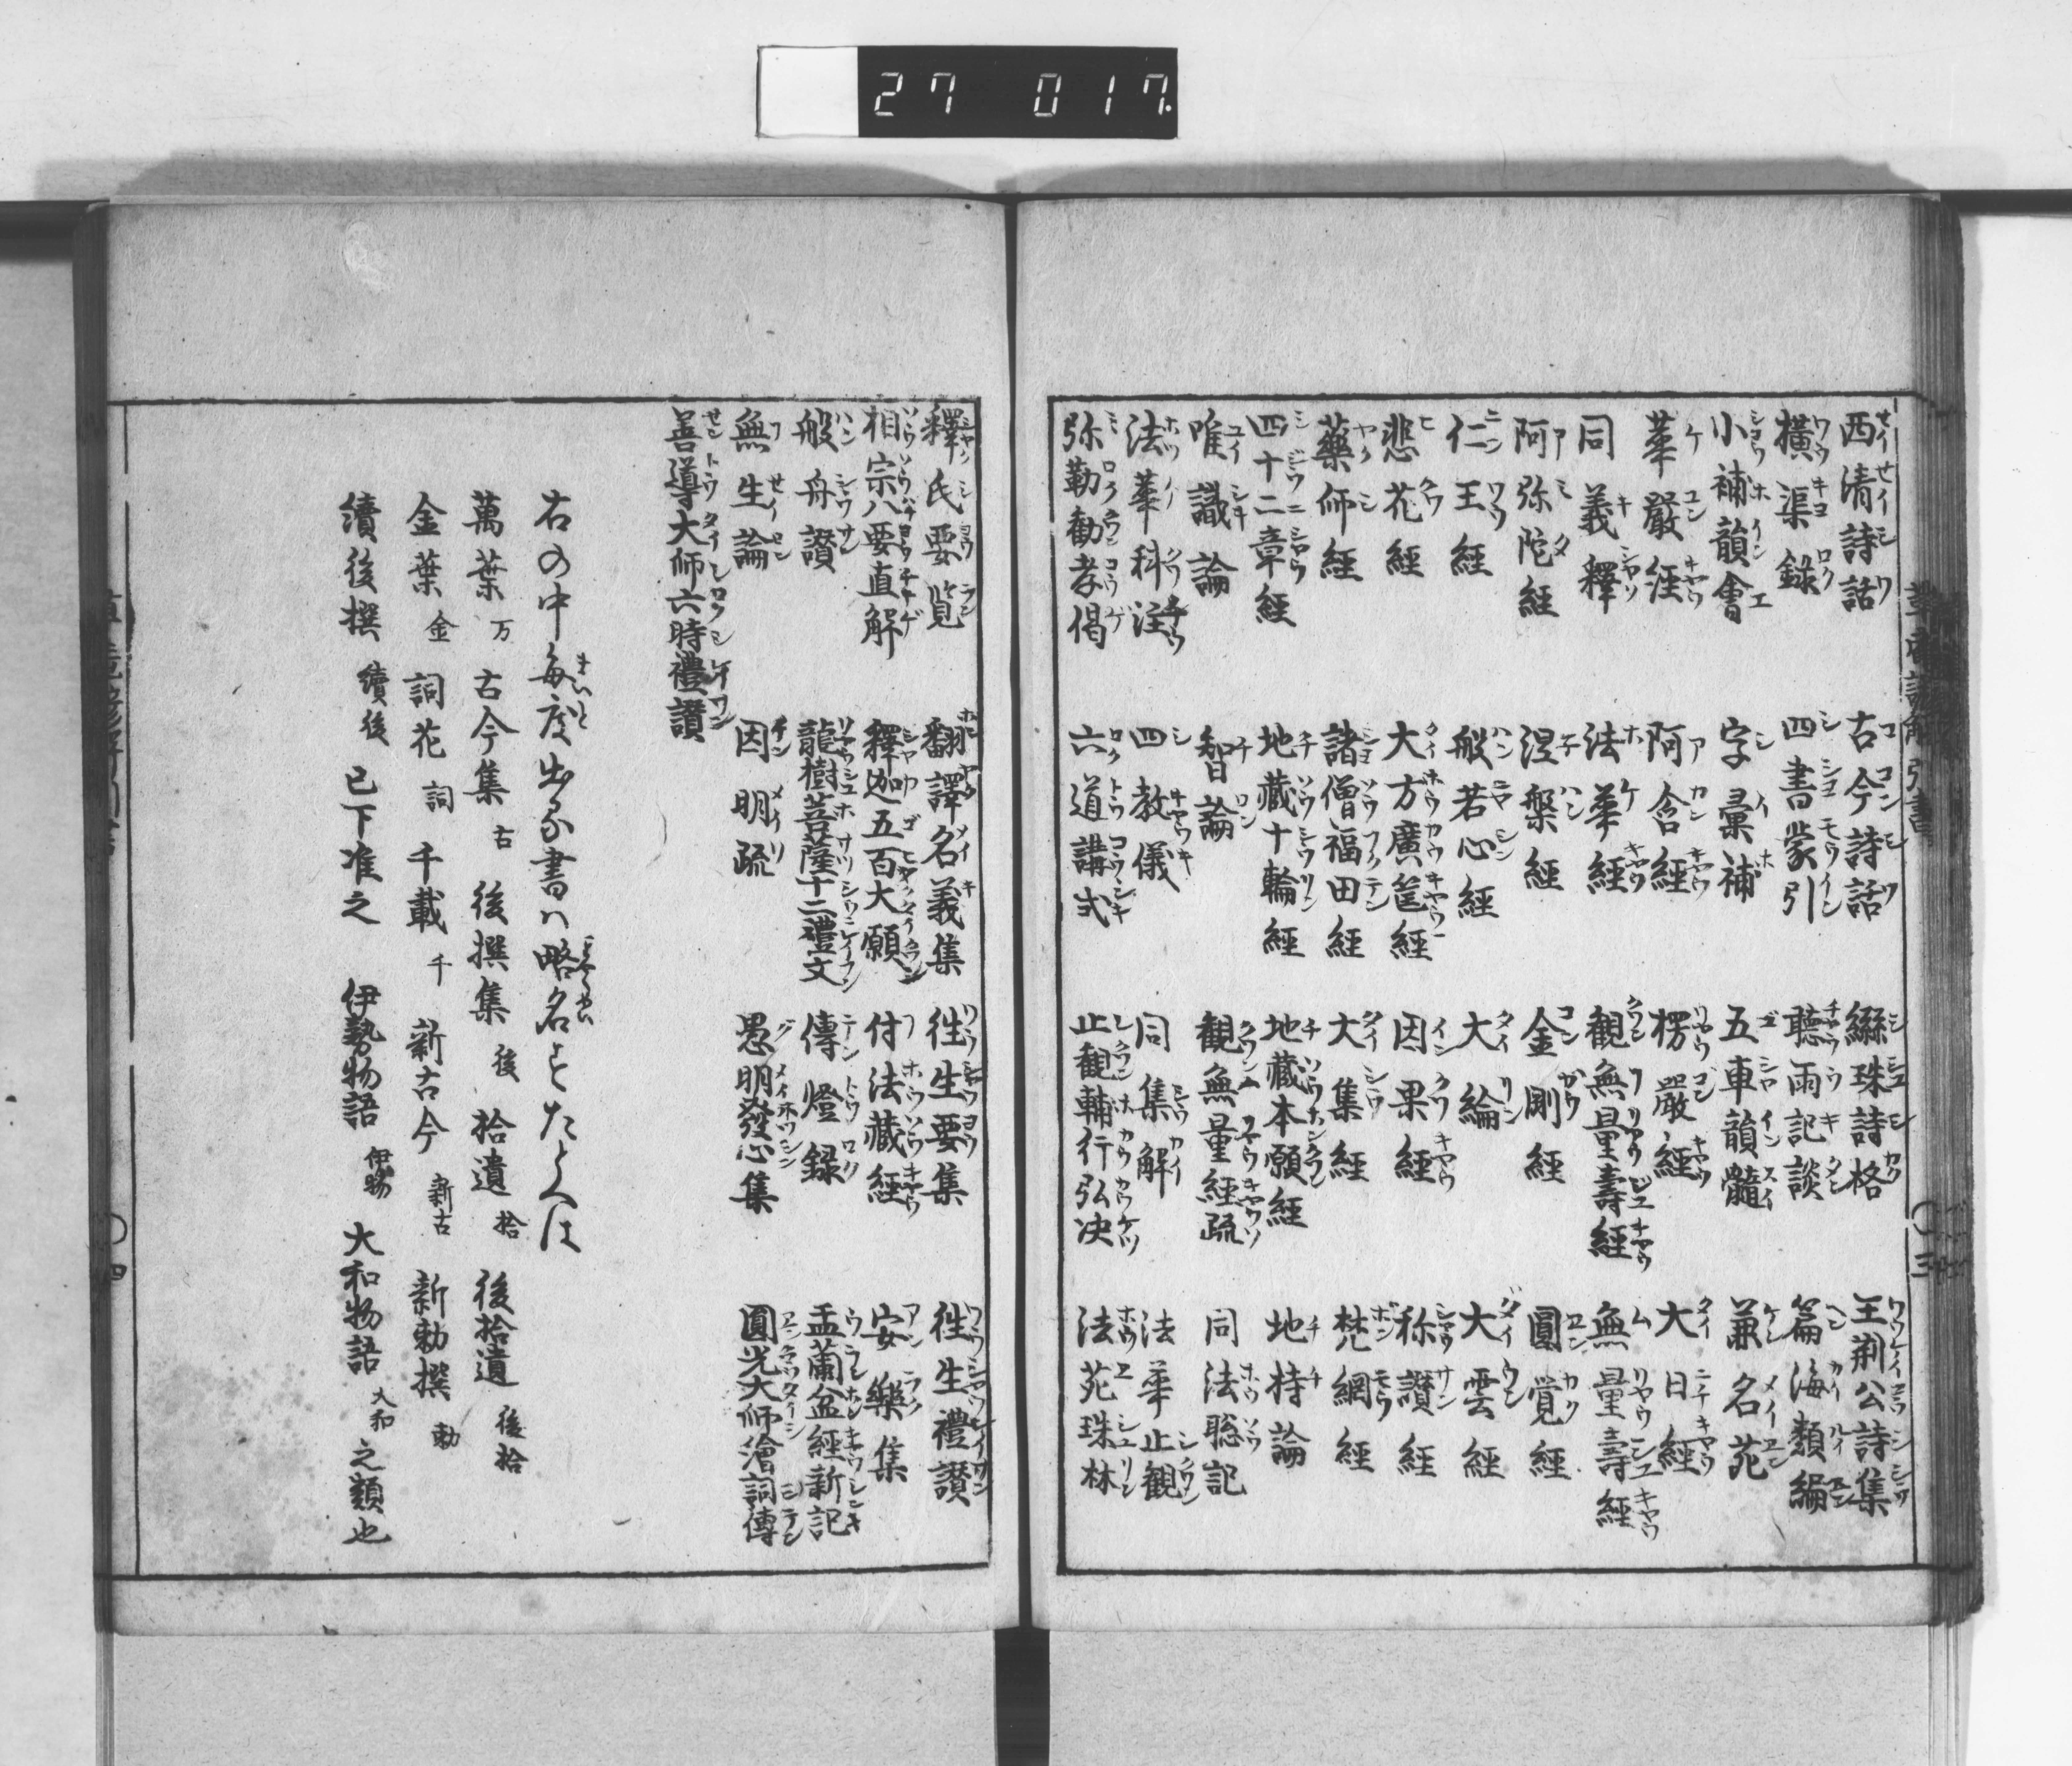 27 017
西清詩話 古今詩話 聯珠詩格 王荊公詩集
橫渠錄 四書蒙引 聽雨記談 篇海類編
小補韻會 字彙補 五車韻髓 兼名苑
華嚴經 阿含經 楞嚴經 大日經
同義釋 法華經 觀無量壽經 無量壽經
阿弥陀經 涅槃經 金剛經 圓覚經
仁王經 般若心經 大綸 大雲經
悲花經 大方廣筐經 因果經 称讃經
藥師經 諸僧福田經 大集經 梵網經
四十二章經 地藏十輪經 地藏本願經 地持論
唯識論 智論 觀無量經疏 同法聡記
法華科註 四教儀 同集解 法華止観
弥勒勸孝偈 六道講式 止観輔行弘决 法苑珠林
三
釋氏要覧 翻譯名義集 往生要集 往生禮讃
相宗八要直解 釋迦五百大願 付法藏經 安樂集
般舟讃 龍樹菩薩十二禮文 傳燈錄 盂蘭盆經新記
無生論 因明疏 愚明發心集 圓光大師繪詞傳
善導大師六時禮讃
右の中毎度出る書ハ略名をすたとへは
萬葉 万 古今集 古 後撰集 後 拾遺 拾 後拾遺 後拾
金葉 金 詞花 詞 千載 千 新古今 新古 新勅撰 勅
續後撰 續後 已下准之 伊勢物語 伊物 大和物語 大和 之類也
四